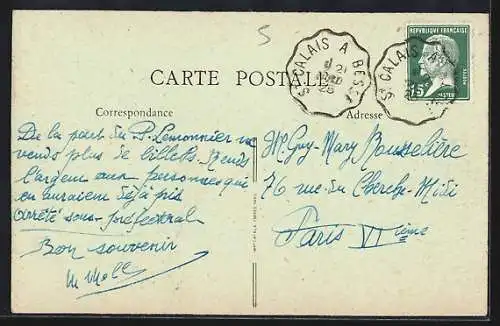 5
RÉPUBLIQUE FRANÇAISE
POSTES
15c
PASTEUR
St CALAIS A BESSÉ
21
28
St CALAIS A
CARTE POSTALE
Correspondance
Adresse
De la part du P. Lemonnier ne
vends plus de billets. Rends
l'argent aux personnes qui
en auraient déjà pris
Arrêté sous-préfectoral
Bon souvenir
M. Guy-Mary Rousselière
76 rue du Cherche-Midi
Paris VIième